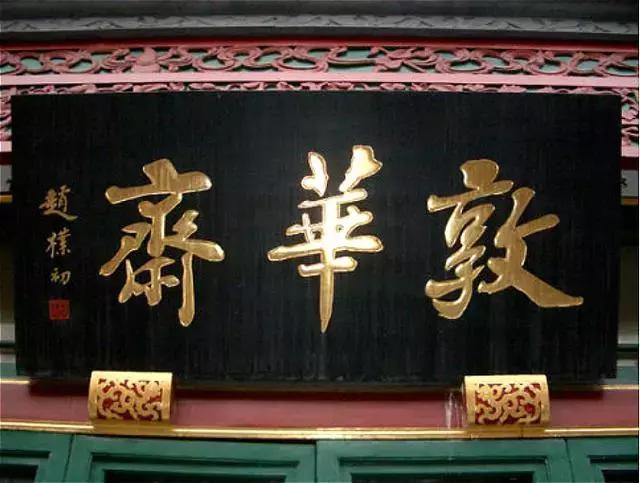 敦華齋
趙樸初